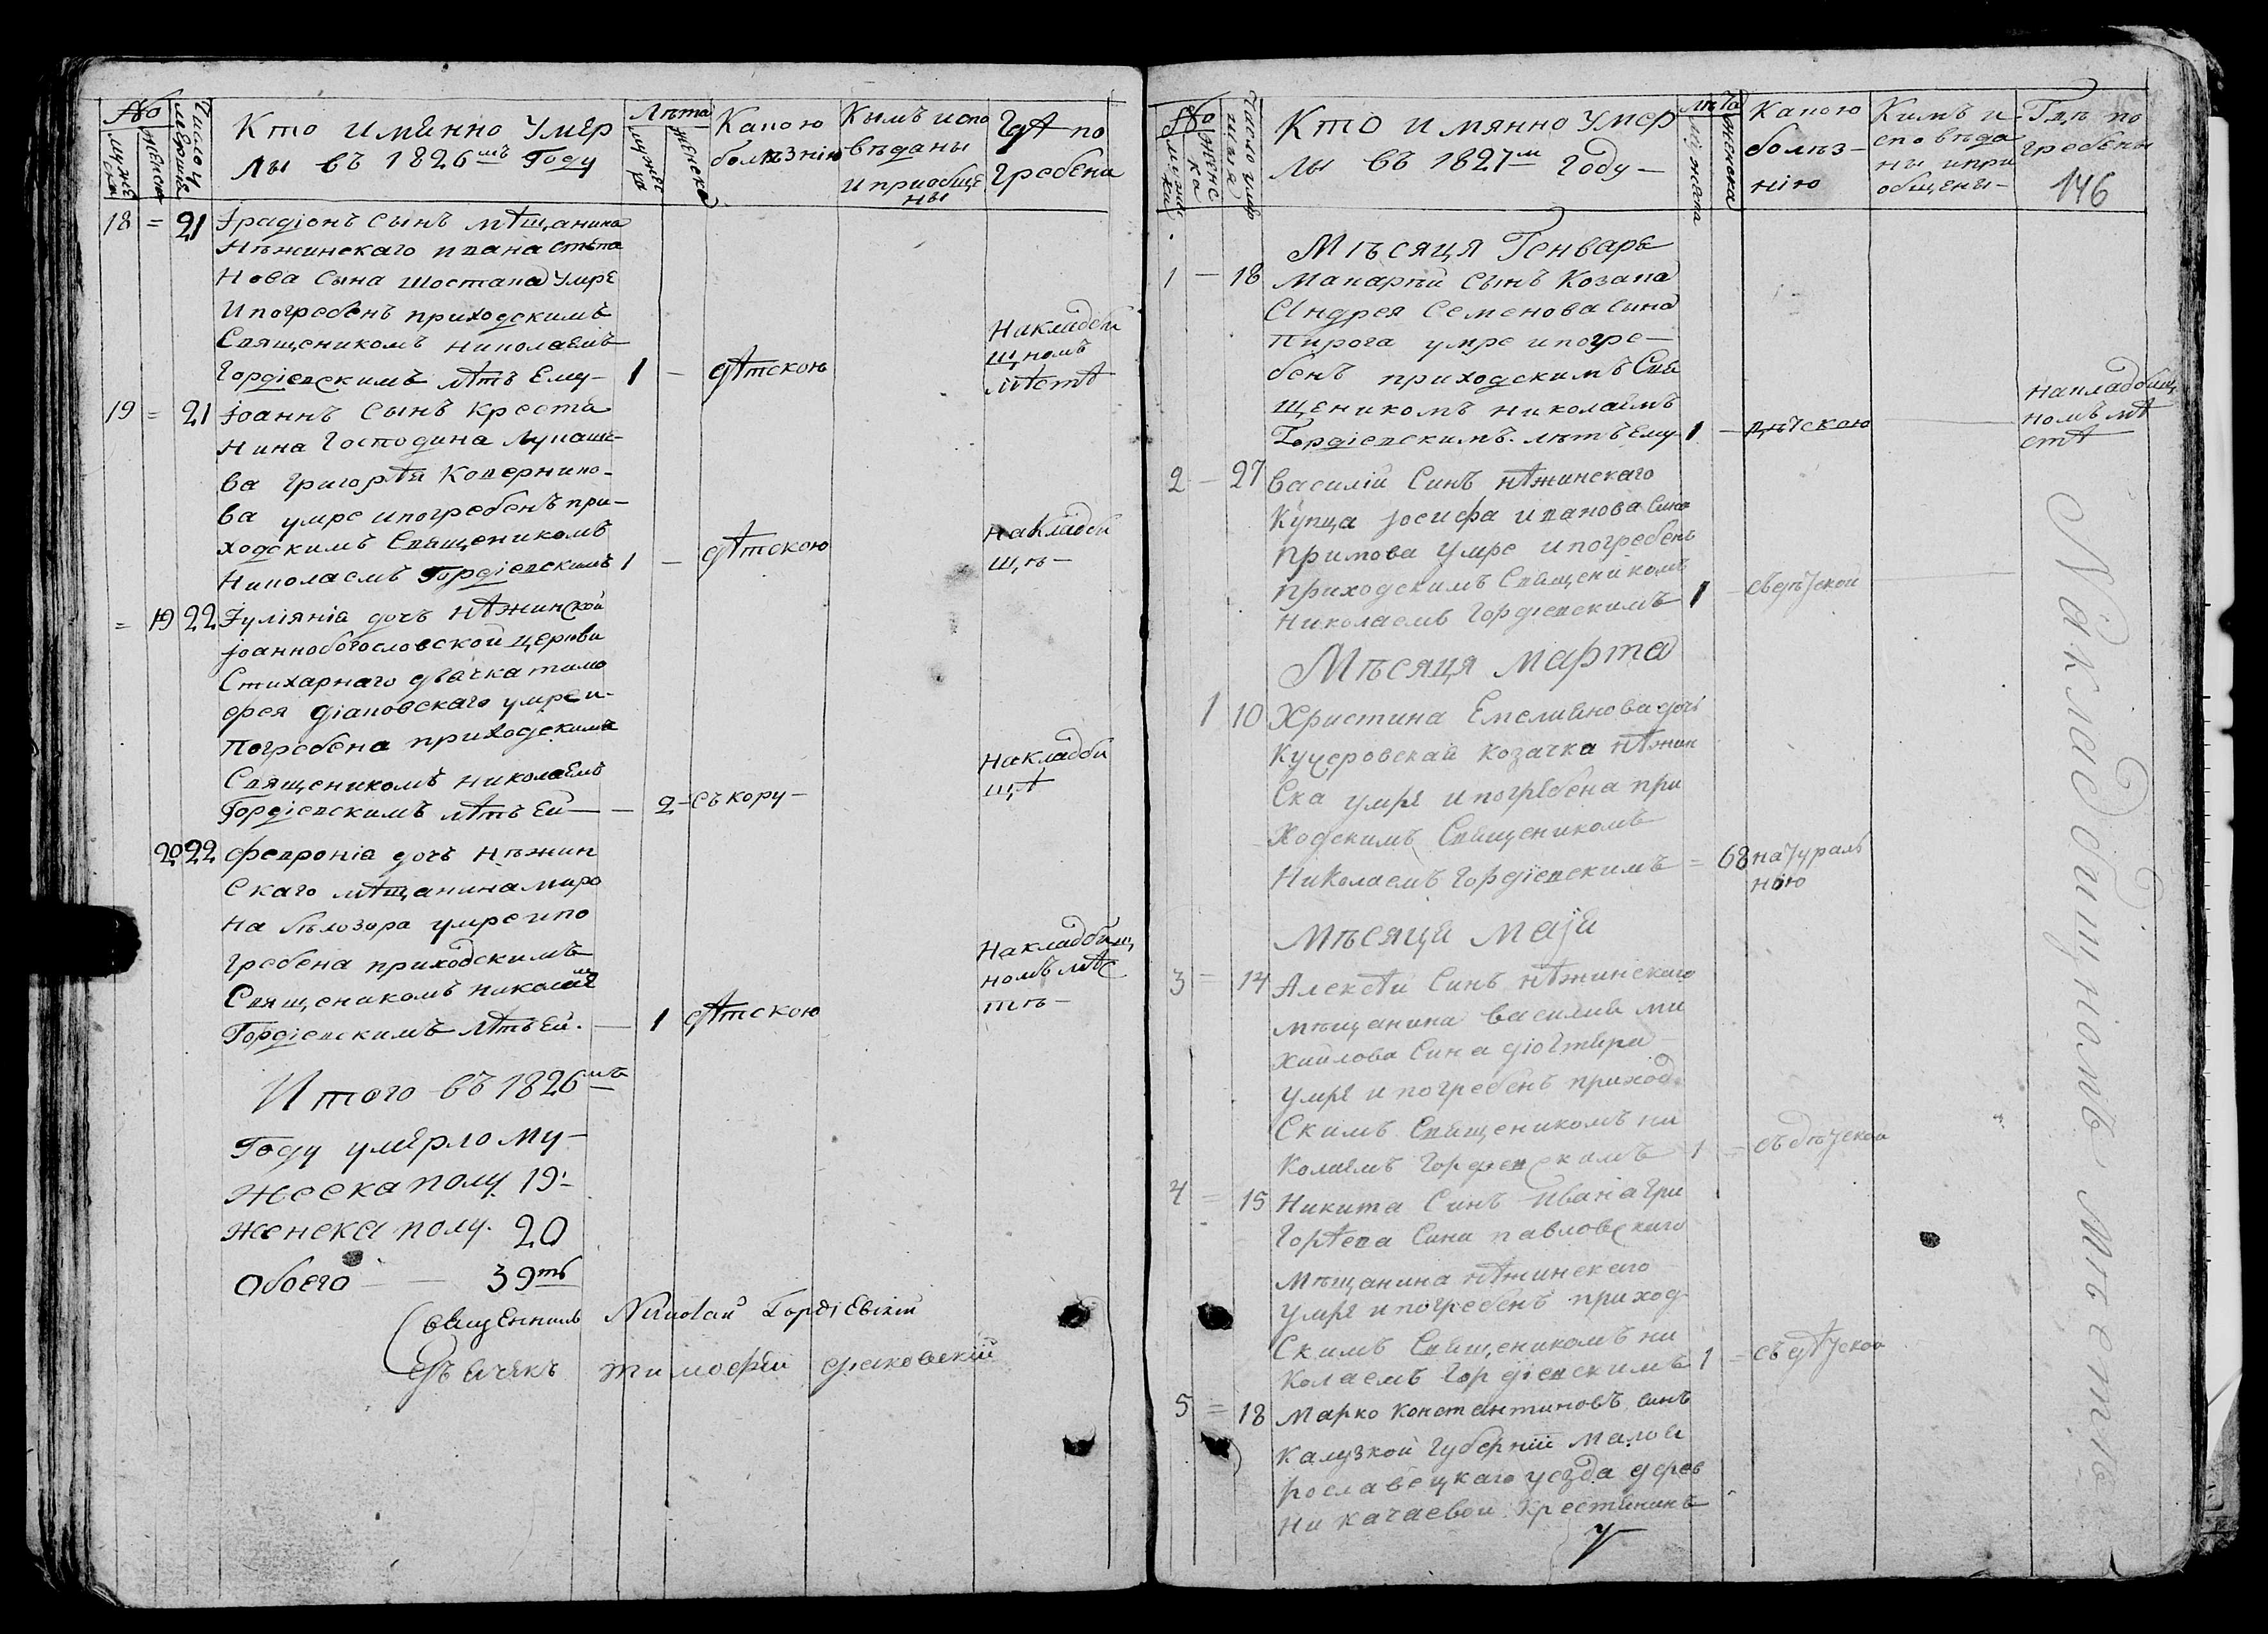 №
мужеска
женска
Число умершие
Кто имянно умер
лы въ 1826мъ Году
Лѣта
мужес
женска
Какою
болѣзнію
Кымъ испо
вѣданы
и приобще
ны
Гдѣ по
гребени
18 = 21 Ірадіонъ сынъ мѣщанина
Нѣжинскаго ивана степа
нова сына шостака умре
и погребенъ приходскимъ
Священикомъ николаемъ
Гордіевскимъ лѣтъ Ему— 1 — дѣтскою
Накладби
щномъ
мѣстѣ
19 = 21 Іоаннъ сынъ кресτя
нина Господина Лукаше
ва григорѣя Ковернико-
ва умре и погребенъ при-
ходскимъ Священикомъ
Николаемъ Гордіевскимъ 1 — дѣтскою
накладби
щѣ—
= 19 22 Іуліянія дочъ нѣжинской
Іоаннобогословской церкви
Стихарнаго дьячка тимо
фея діаковскаго умре и
погребена приходскимъ
Священикомъ николаемъ
Гордіевскимъ лѣтъ Ей — 2 — съ кору—
накладби
щѣ
20 22 февронія дочъ Нѣжин
скаго мѣщанина миро
на бѣлозора умре и по
гребена приходскимъ
Священикомъ николаемъ
Гордіевскимъ лѣтъ Ей. — 1 дѣтскою
Накладбищ
номъ мѣс
тѣ—
Итого въ 1826мъ
Году умерло му—
жеска полу 19.
женска полу. 20
Обоего — 39ть
Священникъ Николай Гордіевскій
Дьячекъ тимофей дяковскій
№
мужес
ка
женс
ка
Число умер
шыя
Кто имянно умер
лы въ 1827м Году—
лѣта
мужеска
женска
Какою
болѣз-
нію
Кимъ и
сповѣда
ны и при
общены—
Гдѣ по
гребены
146
Мѣсяця Генваря
1 — 18 Макарій сынъ Козака
Андрея Семенова сына
Пирога умре и погре—
бенъ приходскимъ Свя
щеникомъ николаемъ
Гордіевскимъ. лѣтъ ему 1 — дѣтскою
накладбищ
номъ мѣ
стѣ
2 — 27 Василій Синъ нѣжинскаго
Купца Іосифа иванова сина
примова умре и погребенъ
приходскимъ Священикомъ
Николаемъ Гордіевскимъ 1 — съ дѣтской
Мѣсяця марта
1 10 Христина Емелянова дочъ
Кучеровская козачка нѣжин
ска умре и погребена при
ходскимъ Священикомъ
Николаемъ гордіевскимъ = 68 натураль
ною
Мѣсяця маія
3 = 14 Алексѣй Синъ нѣжинскаго
мѣщанина василия ми
хайлова сина діогтяра
умре и погребенъ приход
скимъ Священикомъ ни
колаемъ гордіевскимъ 1 = съ дѣтской
4 = 15 Никита Синъ Ивана гри
горѣева Сина павловскаго
мѣщанина нѣжинскаго
умре и погребенъ приход-
скимъ Священикомъ ни
колаемъ гордіевскимъ 1 = съ дѣтской
5 = 18 Марко Константиновъ синъ
калузкой губерніи малоя
рославецкаго уезда дерев
ни качаевой крестянинъ
у
Накладбищномъ мѣстѣ